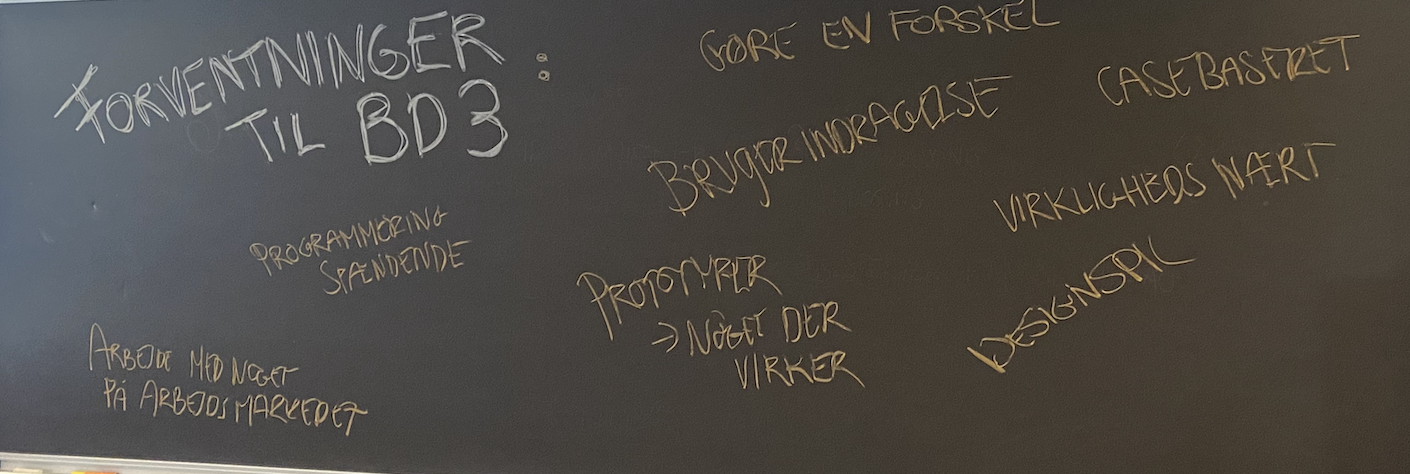 FORVENTNINGER :
TIL BD3
GØRE EN FORSKEL
CASEBASERET
BRUGERINDRAGELSE
VIRKLIGHEDS NÆRT
PROGRAMMERING
SPÆNDENDE
PROTOTYPER
→ NOGET DER
VIRKER
DESIGNSPIL
ARBEJDE MED NOGET
PÅ ARBEJDSMARKEDET